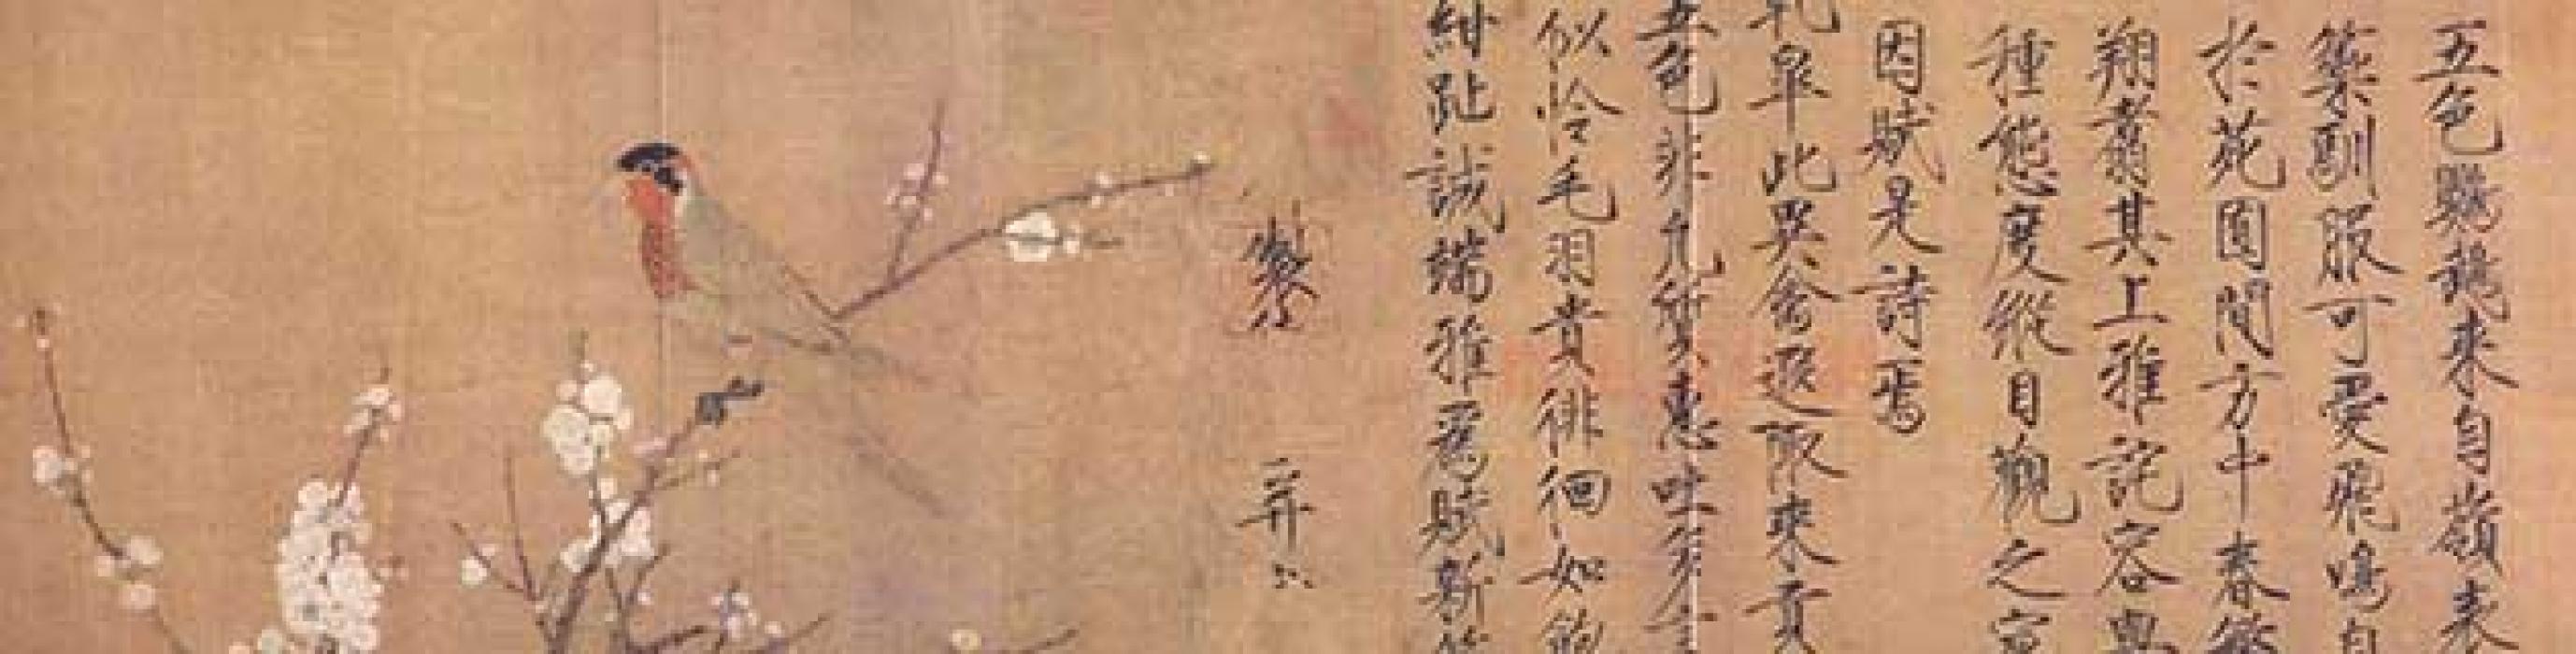 五色鸚鵡來自嶺表
籞馴服可愛飛鳴自
於苑囿間方中春繁
翔翥其上雅詫容與
種態度縱目觀之宛
因賦是詩焉
乾皋此異禽遐陬來貢
五色非凡質惠吐多言
似憐毛羽貴徘徊如飽
紺趾誠端雅為賦新
製
并